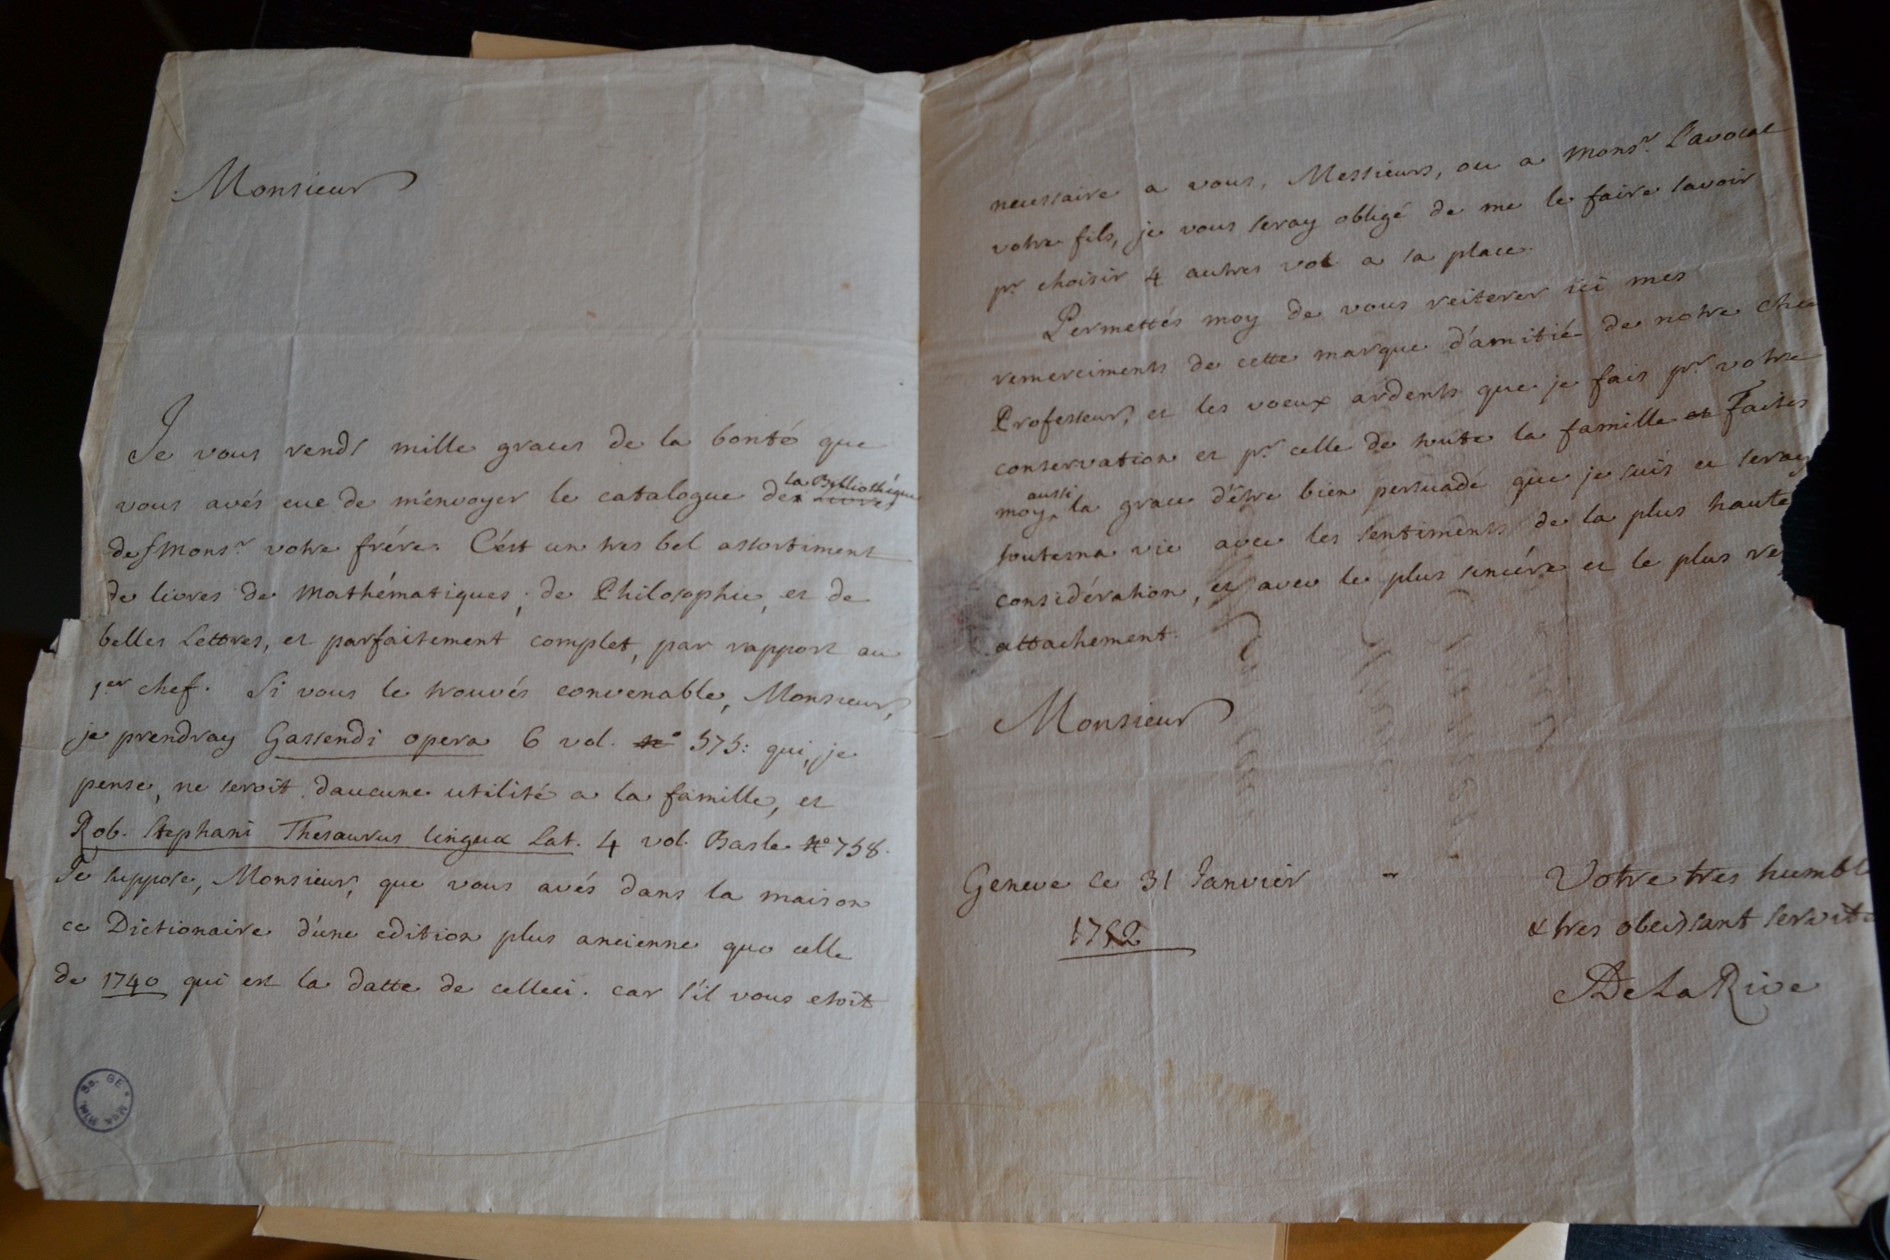 Monsieur
Je vous rends mille graces de la bonté que
vous avés eue de m'envoyer le catalogue de la Bibliothéque
de Monsr votre frére. C'ést un tres bel assortiment
de livres de Mathématiques, de Philosophie, et de
belles Lettres, et parfaitement complet, par rapport au
1er chef. Si vous le trouvés convenable, Monsieur,
je prendray Gassendi opera 6 vol. No 575: qui, je
pense, ne seroit d'aucune utilité a la famille, et
Rob. Stephani Thesaurus linguæ Lat. 4 vol. Basle No 758.
Je suppose, Monsieur, que vous avés dans la maison
ce Dictionaire d'une edition plus ancienne que celle
de 1740 qui est la datte de celleci. car s'il vous etoit
necessaire a vous, Messieurs, ou a Monsr. L'avocat
votre fils, je vous seray obligé de me le faire savoir
pr. choisir 4 autres vol a sa place.
Permettés moy de vous reiterer ici mes
remerciments de cette marque d'amitié de notre cher
Professeur, et les voeux ardents que je fais pr. votre
conservation et pr. celle de toute la famille Faites
moy aussi la grace d'être bien persuadé que je suis et seray
toutema vie avec les sentiments de la plus haute
considération, et avec le plus sincére et le plus
attachement.
Monsieur
Geneve ce 31 Janvier
1752
Votre tres humbl
& tres obeissant servit
ADeLaRive